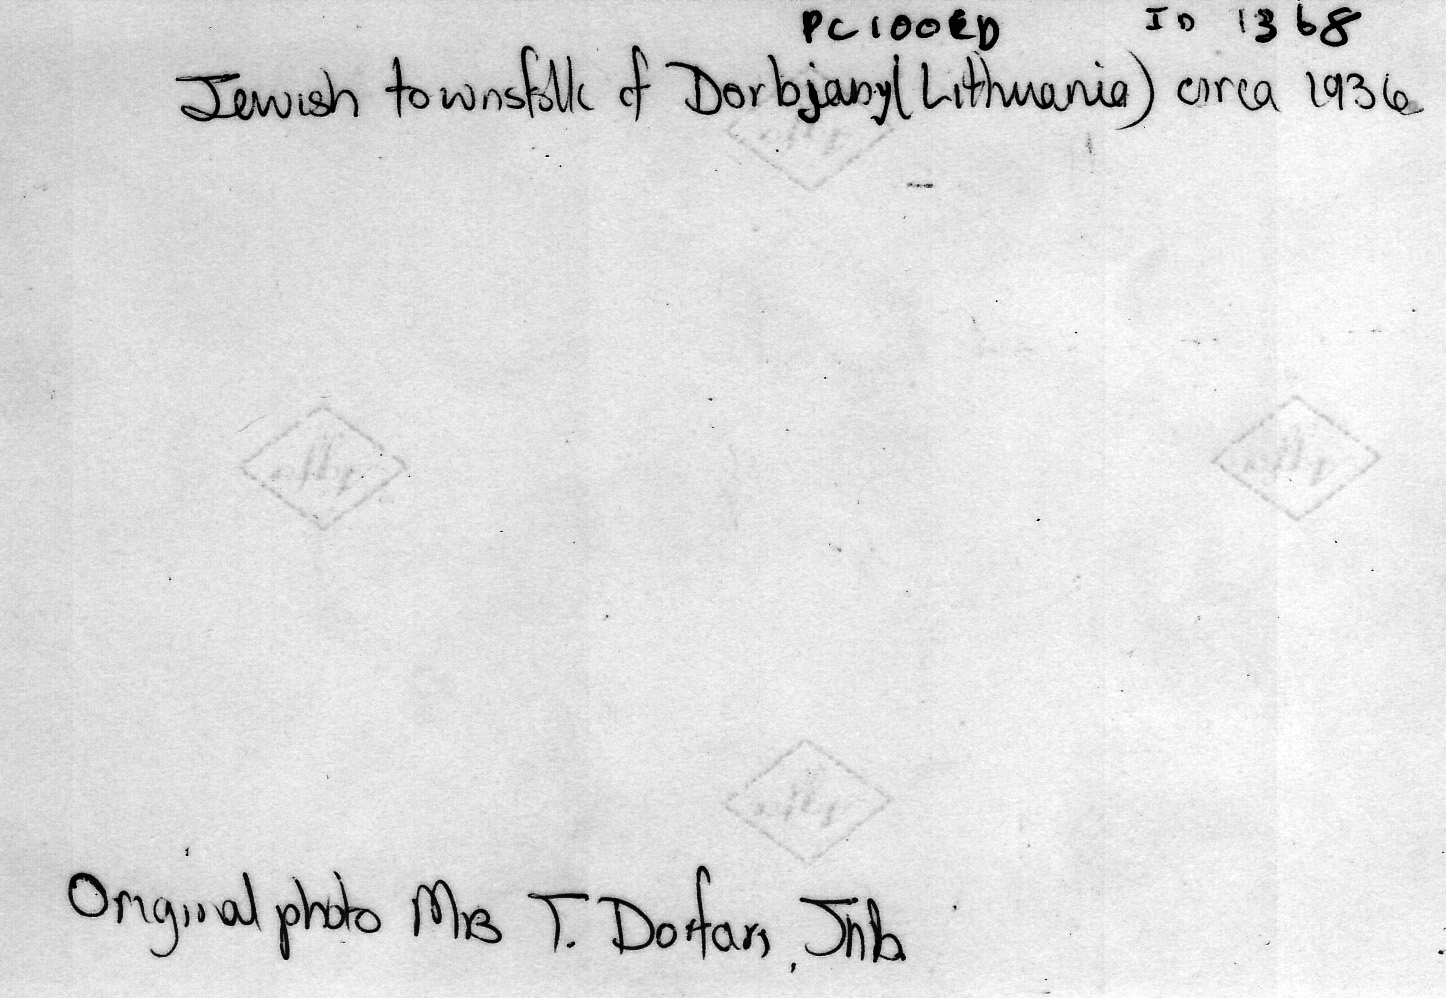 PC100ED ID 1368
Jewish townsfolk of Dorbjany (Lithuania) circa 1936
Original photo Mrs T. Dorfan, Jhb